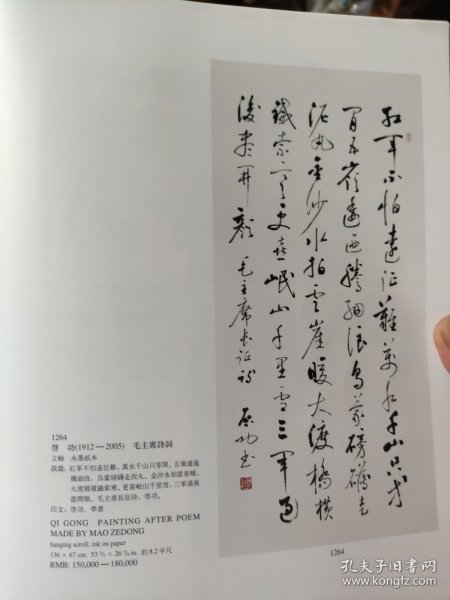 紅軍不怕遠征難萬水千山只等
閒五嶺逶迤騰細浪烏蒙磅礴走
泥丸金沙水拍雲崖暖大渡橋橫
鐵索寒更喜岷山千里雪三軍過
後盡開顏 毛主席長征詩 啓功書
1264
啓 功(1912—2005) 毛主席詩詞
立軸 水墨紙本
款識：紅軍不怕遠征難，萬水千山只等閒。五嶺逶迤
騰細浪，烏蒙磅礴走泥丸。金沙水拍雲崖暖，
大渡橋橫鐵索寒。更喜岷山千里雪，三軍過後
盡開顏。毛主席長征詩，啓功書。
印文：啓功、學書
QI GONG PAINTING AFTER POEM
MADE BY MAO ZEDONG
hanging scroll; ink on paper
136 × 67 cm. 53 1/2 × 26 3/8 in. 約 8.2 平尺
RMB: 150,000—180,000
1264
孔夫子旧书网